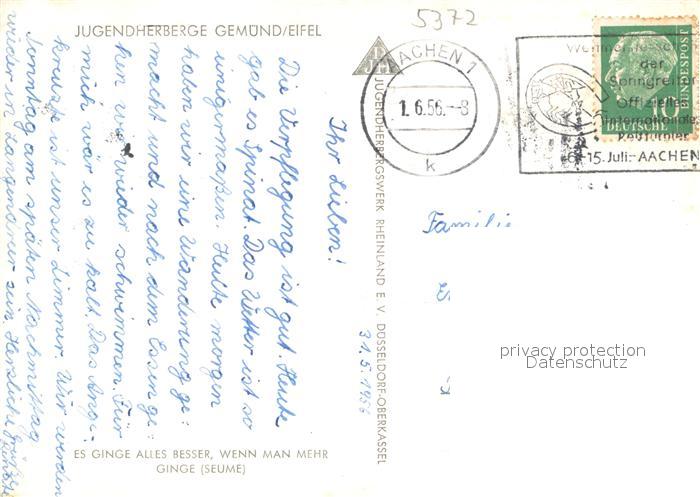 5372
JUGENDHERBERGE GEMÜND/EIFEL
AACHEN 1
1.6.56.-8
k
der
Springreiter
Offizielles
Internationales
Reitturnier
6.-15. Juli - AACHEN
10
DEUTSCHE
BUNDESPOST
JUGENDHERBERGSWERK RHEINLAND E. V. DÜSSELDORF-OBERKASSEL
31.5.1956
Ihr Lieben!
Die Verpflegung ist gut. Heute
gab es Spinat. Das Wetter ist so
einigermaßen. Heute morgen
haben wir eine Wanderung ge-
macht und nach dem Essen ge-
hen wir wieder schwimmen. Für
mich wär es zu kalt. Das Ange-
kreuzte ist unser Zimmer. Wir werden
Sonntag am späten Nachmittag
wieder in Langendreer sein. Herzliche Grüße
Familie
ES GINGE ALLES BESSER, WENN MAN MEHR
GINGE (SEUME)
privacy protection
Datenschutz